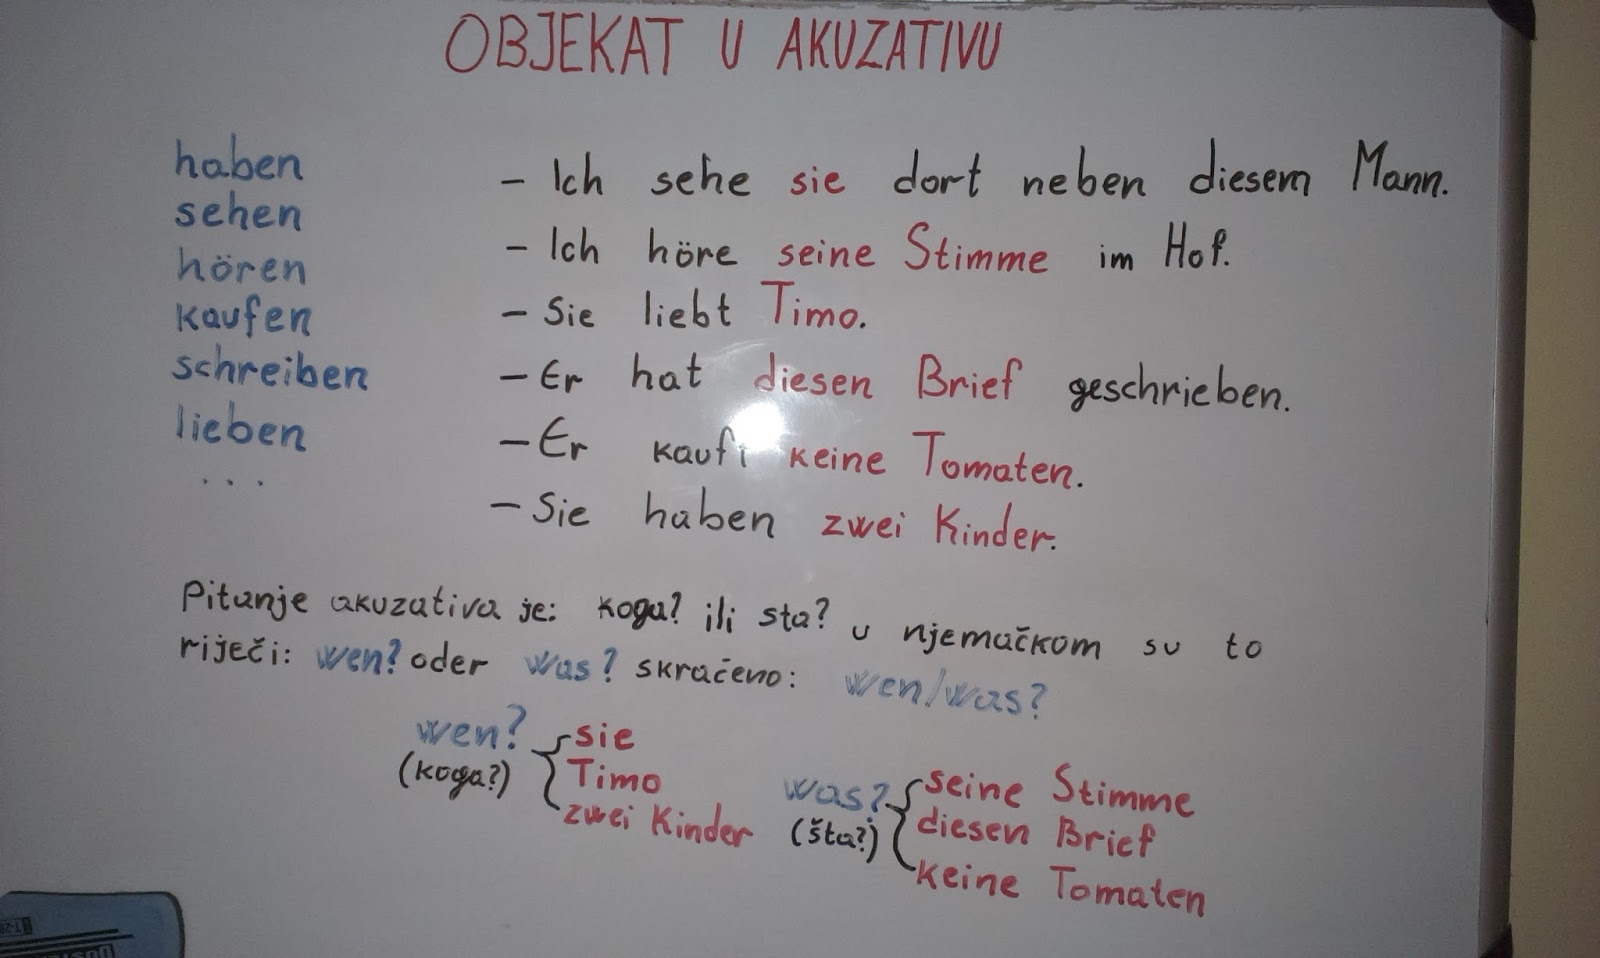 OBJEKAT U AKUZATIVU
haben
sehen
hören
kaufen
schreiben
lieben
...
– Ich sehe sie dort neben diesem Mann.
– Ich höre seine Stimme im Hof.
– Sie liebt Timo.
– Er hat diesen Brief geschrieben.
– Er kauft keine Tomaten.
– Sie haben zwei Kinder.
Pitanje akuzativa je: koga? ili sta? u njemačkom su to
riječi: wen? oder was? skraćeno: wen/was?
wen?
(koga?)
sie
Timo
zwei Kinder
was?
(šta?)
seine Stimme
diesen Brief
keine Tomaten